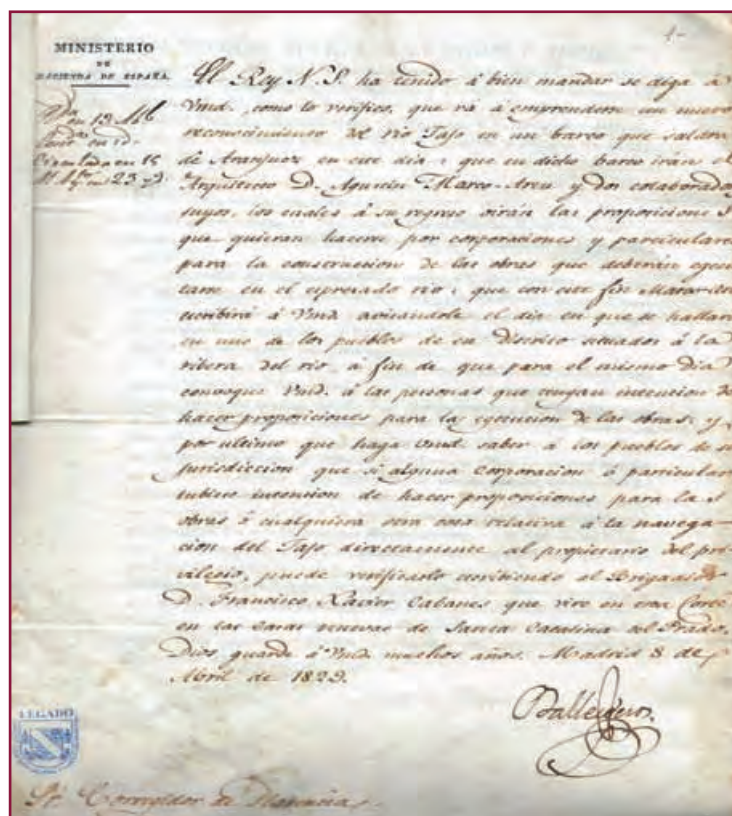 MINISTERIO
DE
HACIENDA DE ESPAÑA.
en 13
Circulada en 15
El Rey N. S. ha tenido á bien mandar se diga á
Vmd., como lo verifico, que vá á emprenderse un nuevo
reconocimiento del rio Tajo en un barco que saldrá
de Aranjuez en este dia; que en dicho barco irán el
Arquitecto D. Agustin Marco-Artu y dos colaboradores
suyos, los cuales á su regreso oirán las proposiciones
que quieran hacerse por corporaciones y particulares
para la construccion de las obras que deberán ejecu
tarse en el expresado rio; que con este fin Marcoartu
escribirá á Vmd. avisandole el dia en que se hallará
en uno de los pueblos de su Distrito situados á la
ribera del rio, á fin de que para el mismo dia
convoque Vmd. á las personas que tengan intencion de
hacer proposiciones para la egecucion de las obras; y
por ultimo que haga Vmd. saber á los pueblos de su
jurisdiccion que si alguna corporacion ó particular
tubiese intencion de hacer proposiciones para las
obras ó cualquiera otra cosa relativa á la navega
cion del Tajo directamente al propietario del pri
vilegio, puede verificarlo escribiendo al Brigadier
D. Francisco Xavier Cabanes que vive en esta Corte
en las Casas nuevas de Santa Catalina del Prado.
Dios guarde á Vmd. muchos años. Madrid 8 de
Abril de 1829.
Ballesteros.
LEGADO
Sr. Corregidor de Plasencia.